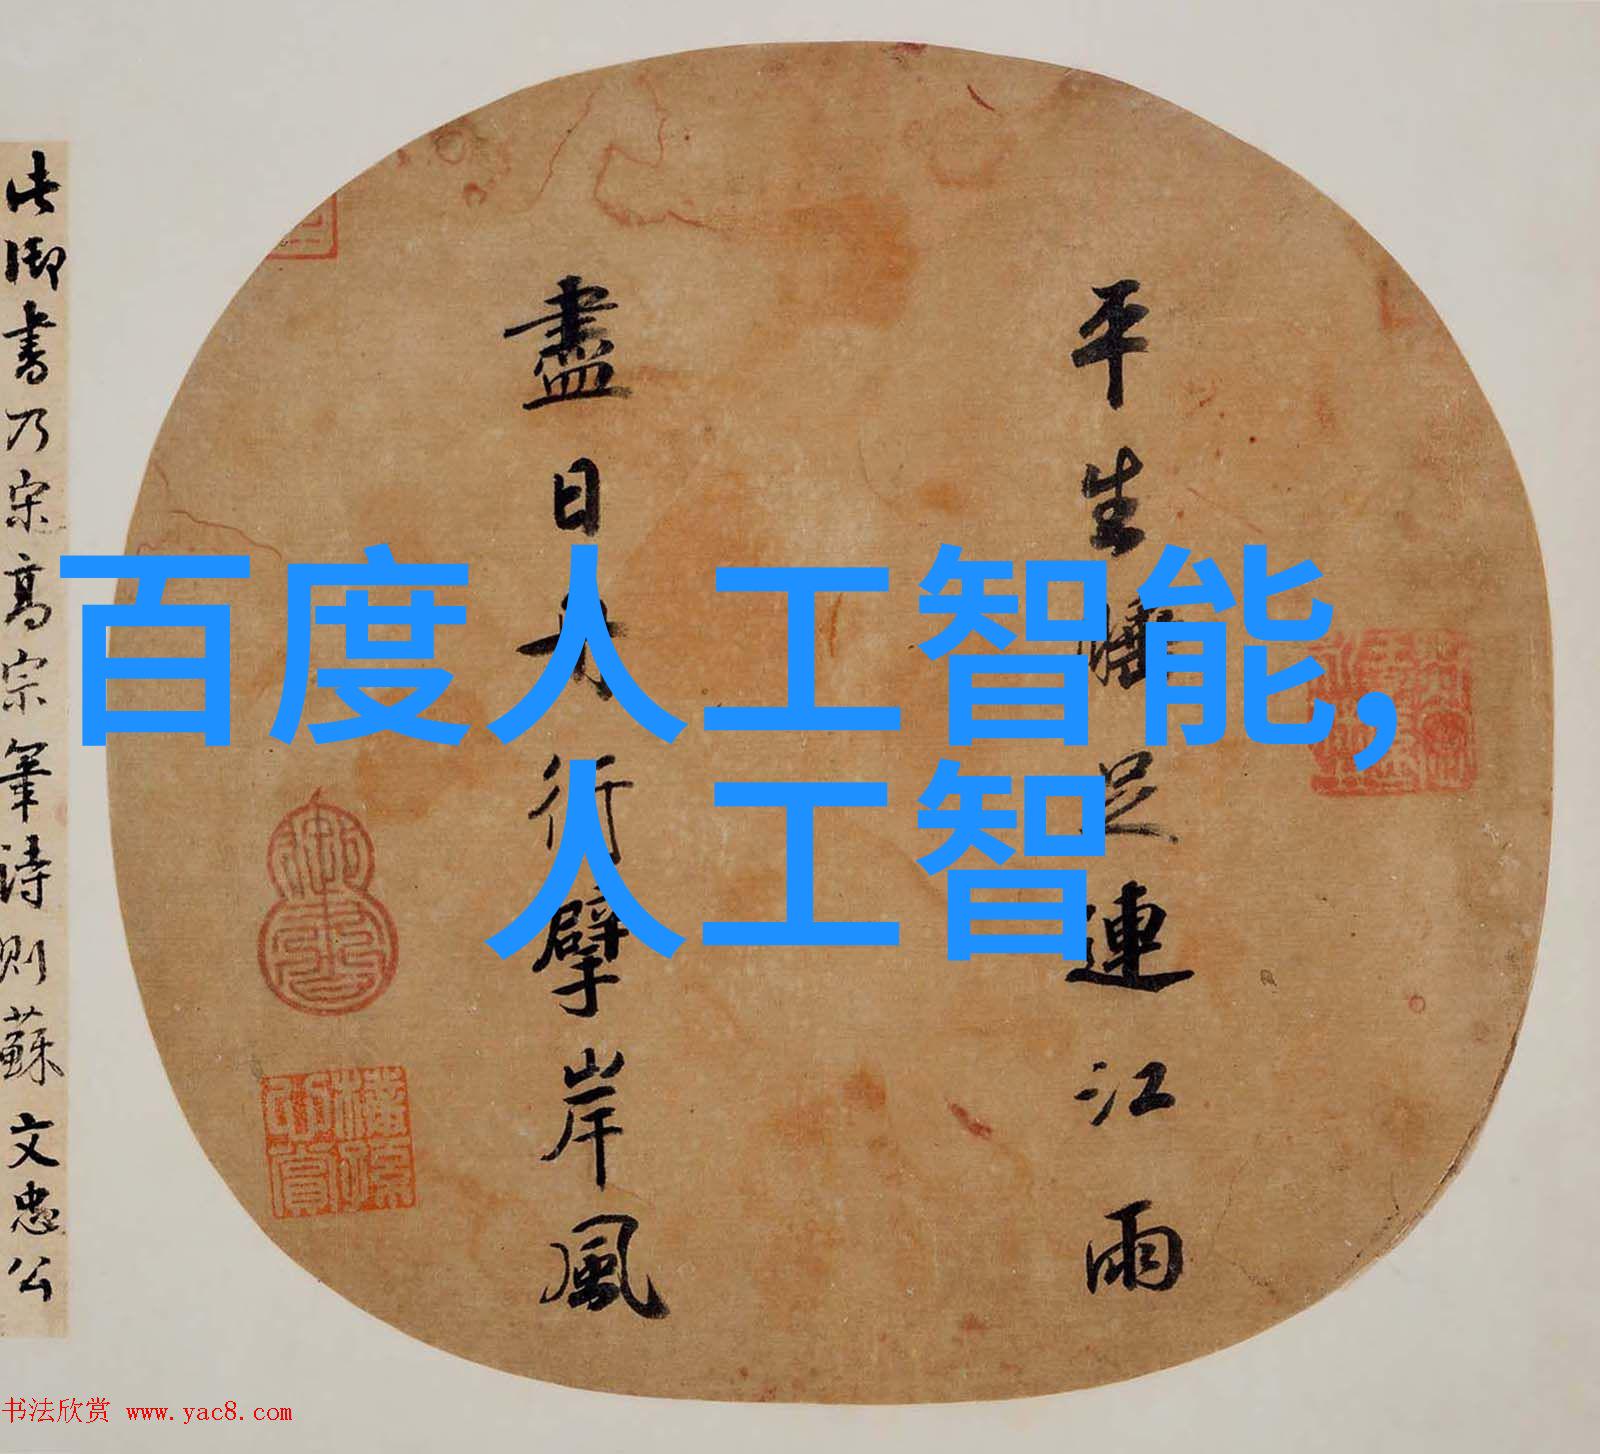 平生睡足連江雨
盡日舟行擘岸風
此御書乃宋高宗筆詩則蘇文忠公
百度人工智能,
人工智
书法欣赏 www.yac8.com